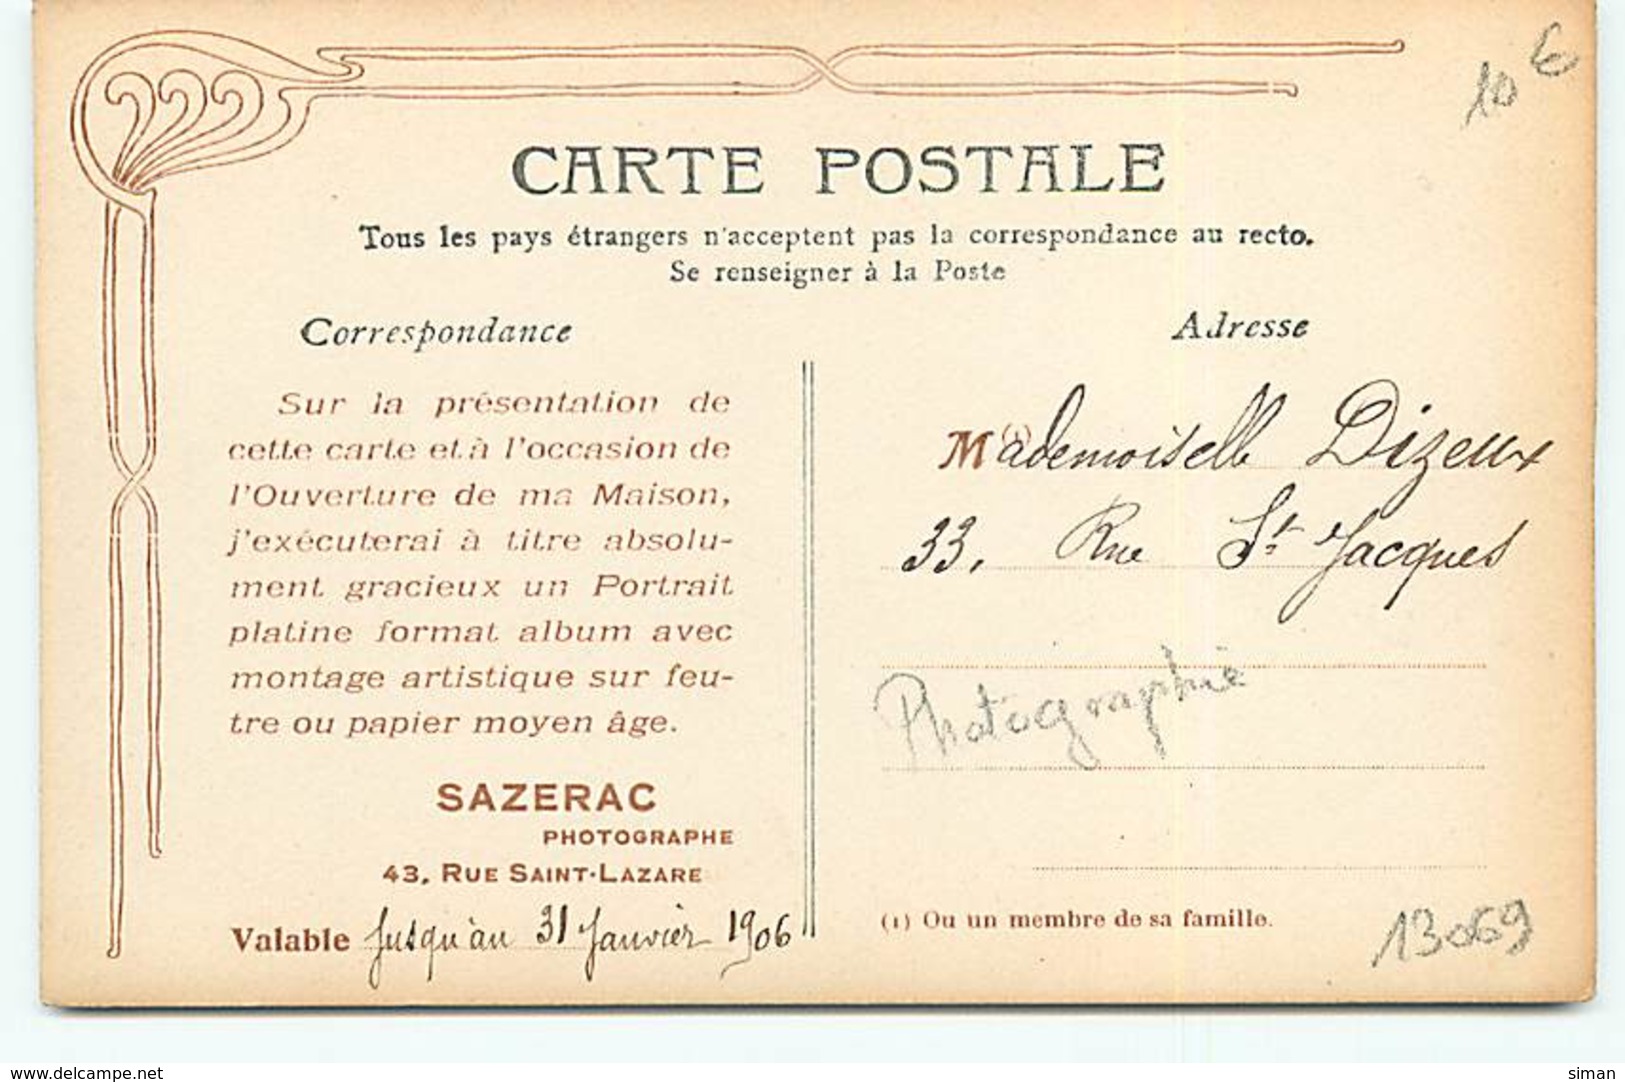 10 €
CARTE POSTALE
Tous les pays étrangers n'acceptent pas la correspondance au recto.
Se renseigner à la Poste
Correspondance
Sur la présentation de
cette carte et à l'occasion de
l'Ouverture de ma Maison,
j'exécuterai à titre absolu-
ment gracieux un Portrait
platine format album avec
montage artistique sur feu-
tre ou papier moyen âge.
SAZERAC
PHOTOGRAPHE
43, RUE SAINT-LAZARE
Valable jusqu'au 31 Janvier 1906
Adresse
M(1)ademoiselle Dizeux
33, Rue St Jacques
Photographie
(1) Ou un membre de sa famille.
13069
www.delcampe.net
siman